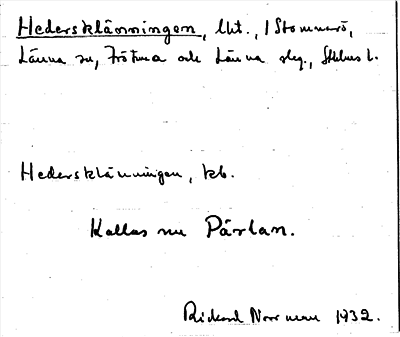 Hedersklänningen, lht., / Stommerö,
Länna sn, Frötuna och Länna slg., Sthlms l.
Hedersklänningen, kb.
Kallas nu Pärlan.
Rickard Norrman 1932.